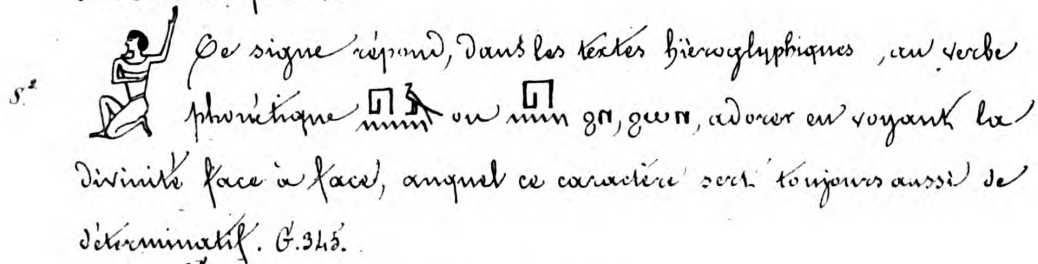 S.² Ce signe répond, dans les textes hiéroglyphiques, au verbe
phonétique 𓉔𓈖 ou 𓉔𓈖 ϩⲛ, ϩⲱⲛ, adorer en voyant la
divinité face à face, auquel ce caractère sert toujours aussi de
déterminatif. G. 345.